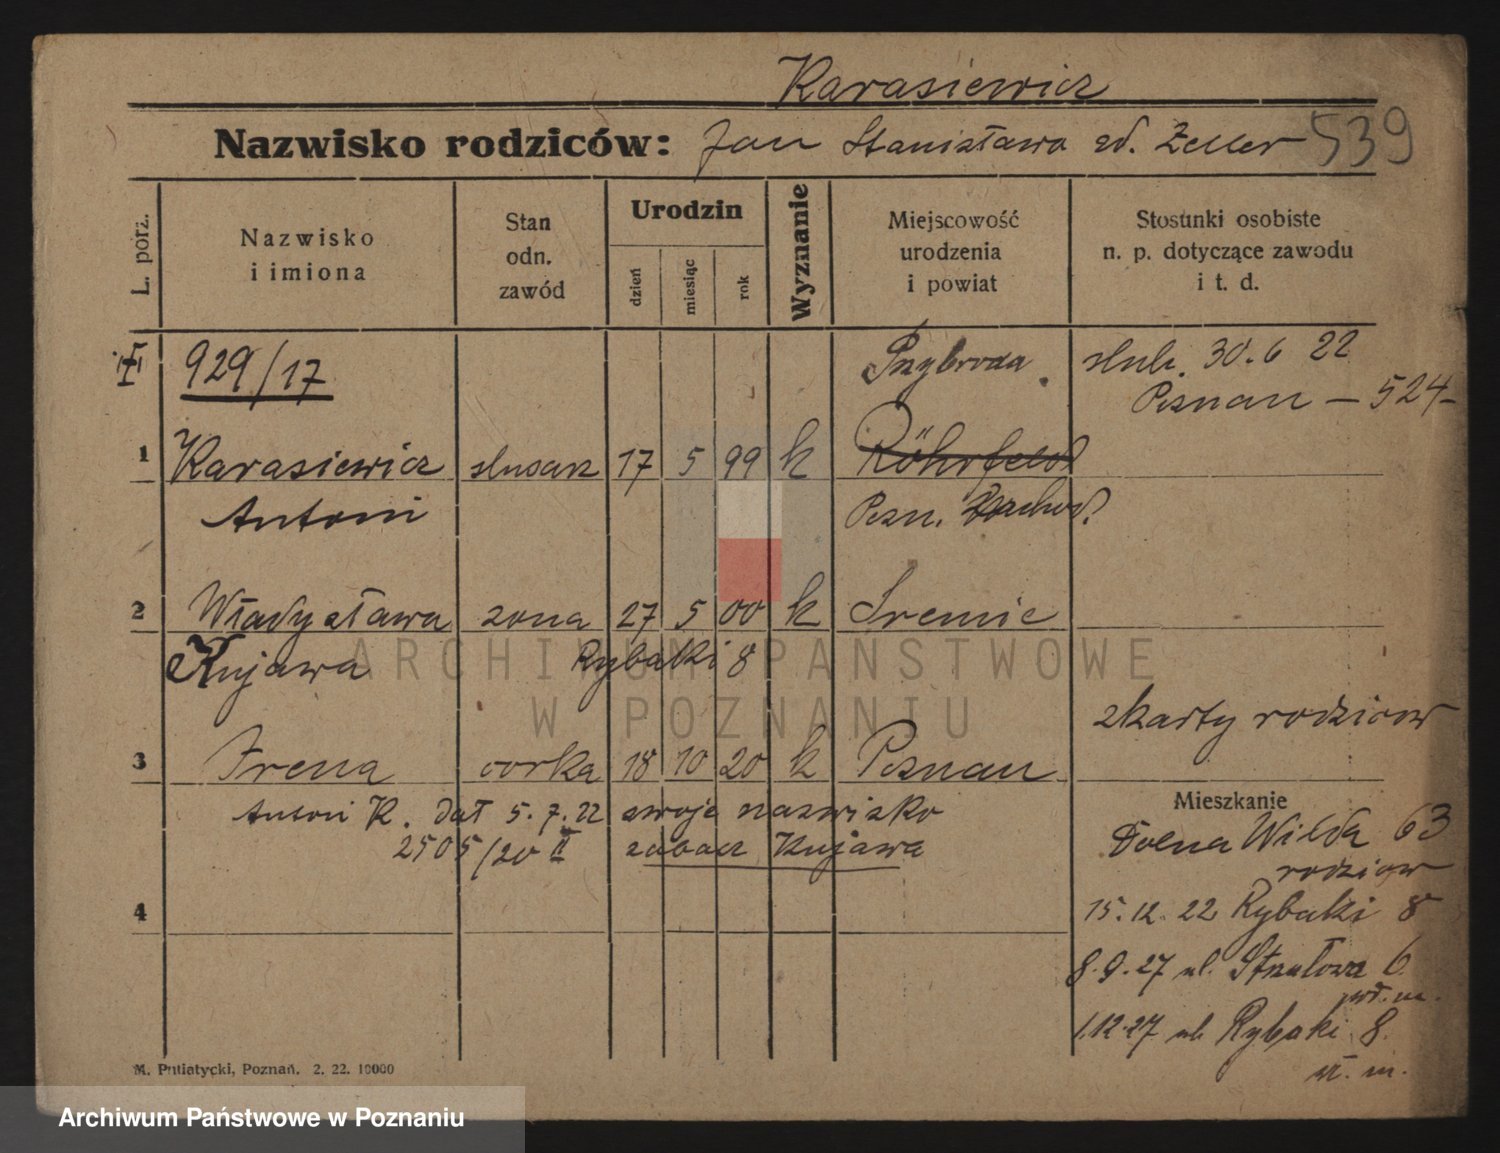 Karasiewicz
Nazwisko rodziców: Jan Stanisława zd. Zeller 539
L. porz.
Nazwisko
i imiona
Stan
odn.
zawód
Urodzin
dzień
miesiąc
rok
Wyznanie
Miejscowość
urodzenia
i powiat
Stosunki osobiste
n. p. dotyczące zawodu
i t. d.
929/17 Przybroda slub. 30.6 22
Poznan – 524 –
1 Karasiewicz slusarz 17 5 99 k Röhrfeld
Antoni Pozn. Zachod.
2 Władysława zona 27 5 00 k Sremie
Kujawa Rybaki 8
z karty rodzicow
3 Irena corka 18 10 20 k Poznan
Antoni K. dał 5.7.22 swoje nazwisko
2505/20 II zobacz Kujawa
Mieszkanie
Dolna Wilda 63
rodzicow
4 15.12.22 Rybaki 8
8.9.27 ul. Strzałowa 6
1.12.27 ul. Rybaki 8.
M. Putiatycki, Poznań. 2. 22. 10000
ARCHIWUM PAŃSTWOWE
W POZNANIU
Archiwum Państwowe w Poznaniu